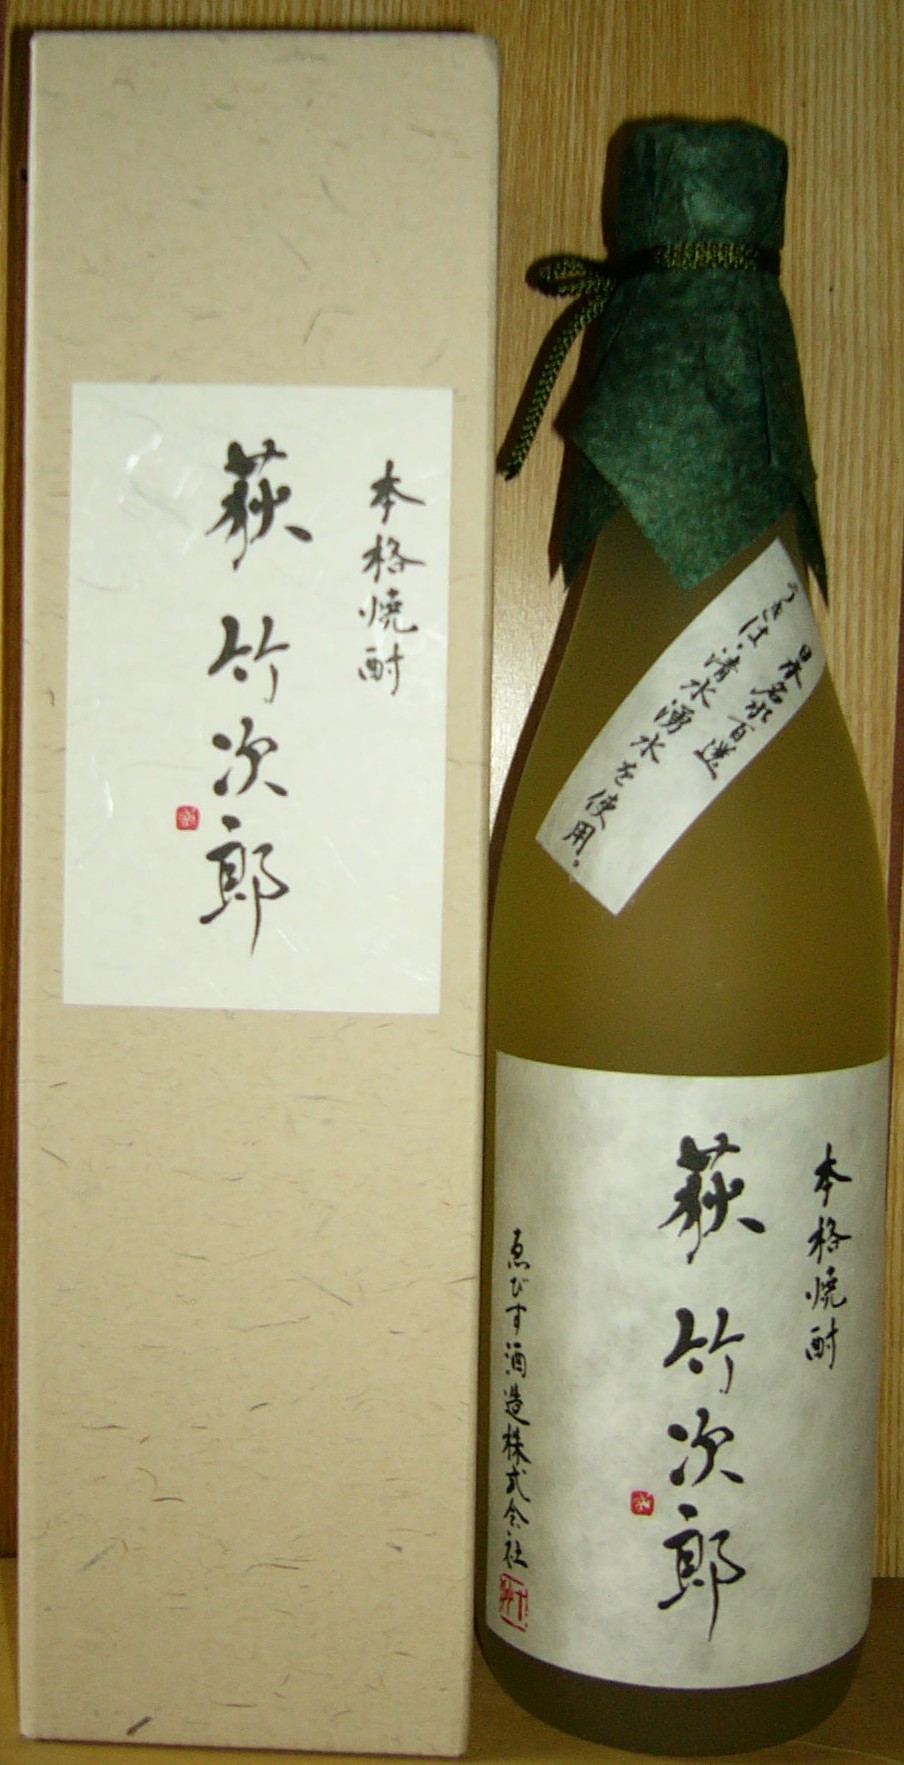 本格焼酎
萩 竹次郎
日本名水百選
うきは・清水湧水を使用。
本格焼酎
萩 竹次郎
ゑびす酒造株式会社